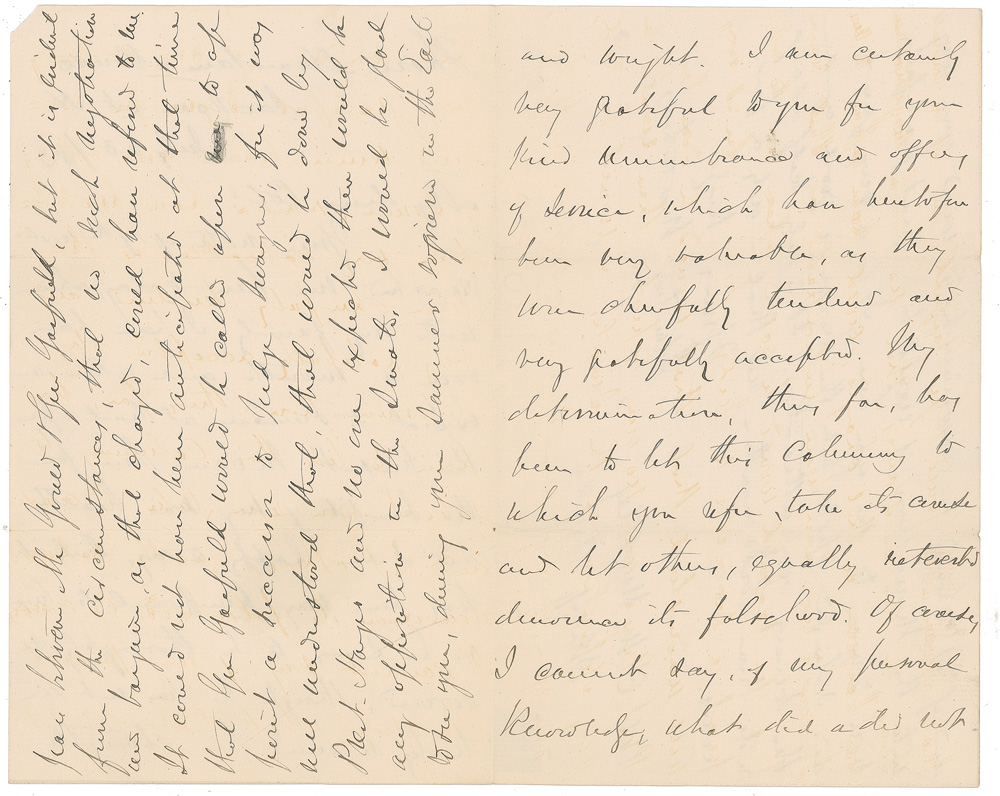 and wright. I am certainly
very grateful to you for your
kind remembrance and offers
of service, which have heretofore
been very valuable, as they
were cheerfully tendered and
very gratefully accepted. My
determination, thus far, has
been to let this Calumny to
which you refer, take its course
and let others, equally interested
denounce its falsehood. Of course,
I cannot say, of my personal
knowledge, what did or did not
pass between Mr Gould & Gen Garfield, but it is evident
from the circumstances, that no such negotiation
and bargain, as that charged, could have referred to me.
It could not have been anticipated at that time
that Gen Garfield would be called upon to ap
point a successor to Judge Swayne, for it was
well understood that, that would be done by
Prest. Hayes and no one expected there would be
any opposition in the Senate. I would be glad
to see you, during your Summer sojourn in the East